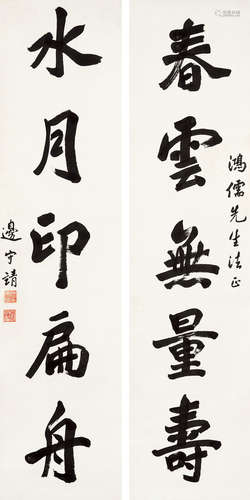 鴻儒先生法正
春雲無量壽
水月印扁舟
邊守靖